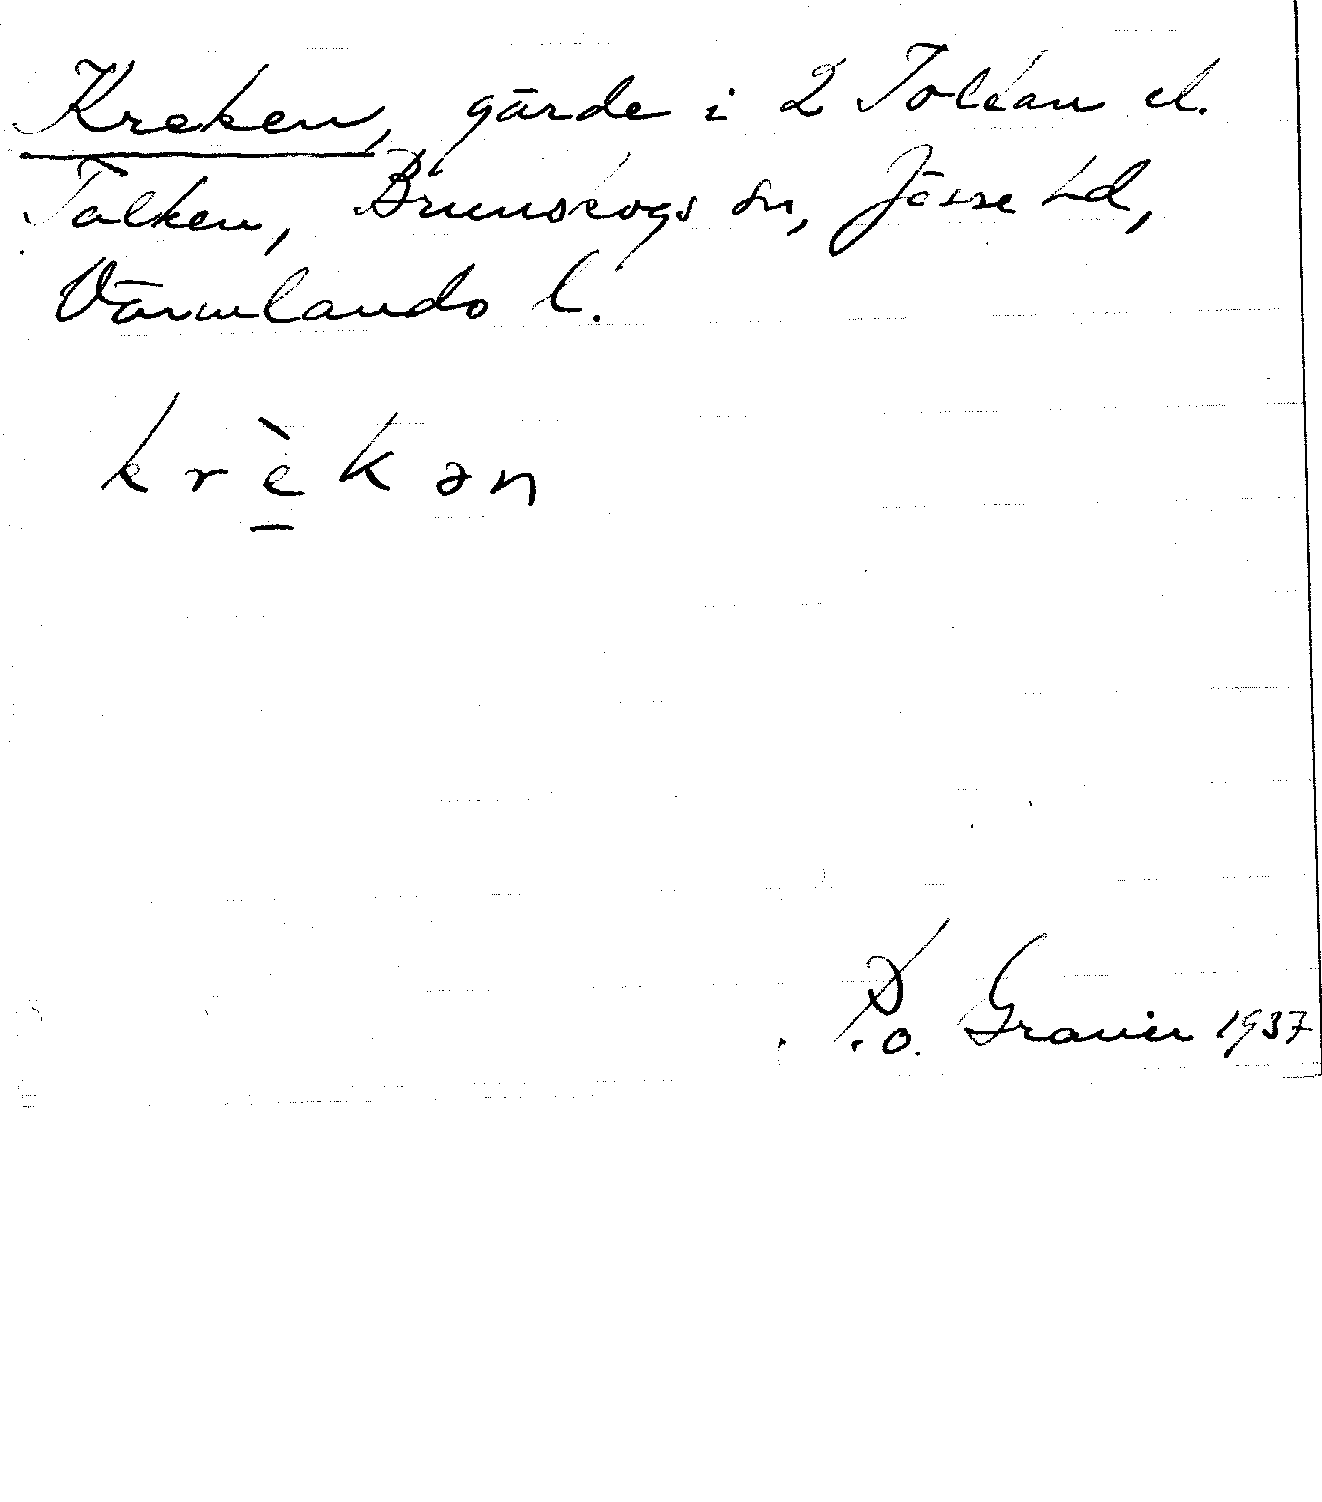 Kreken, gärde i 2 Tolkan el.
Talken, Brunskogs sn, Jösse hd,
Värmlands l.
krèkən
P.o. Graner 1937